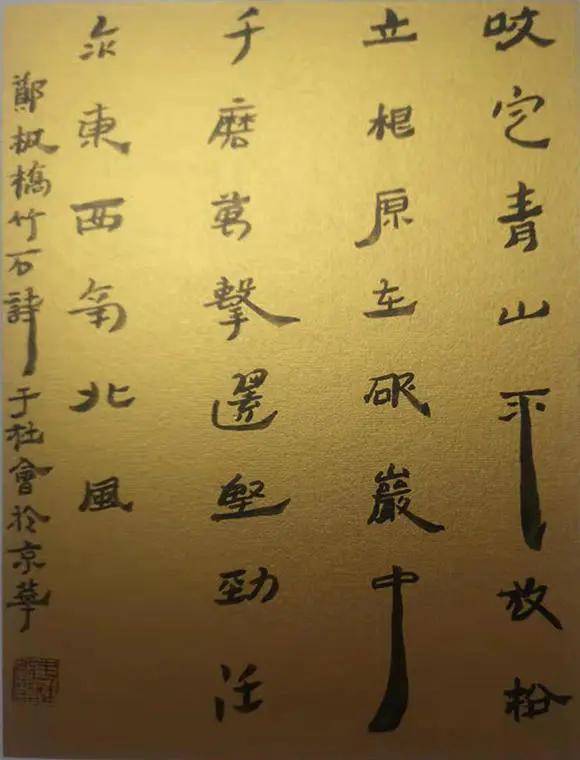 咬定青山不放松
立根原在破巖中
千磨萬擊還堅勁任
尒東西南北風
鄭板橋竹石詩于杜會於京華